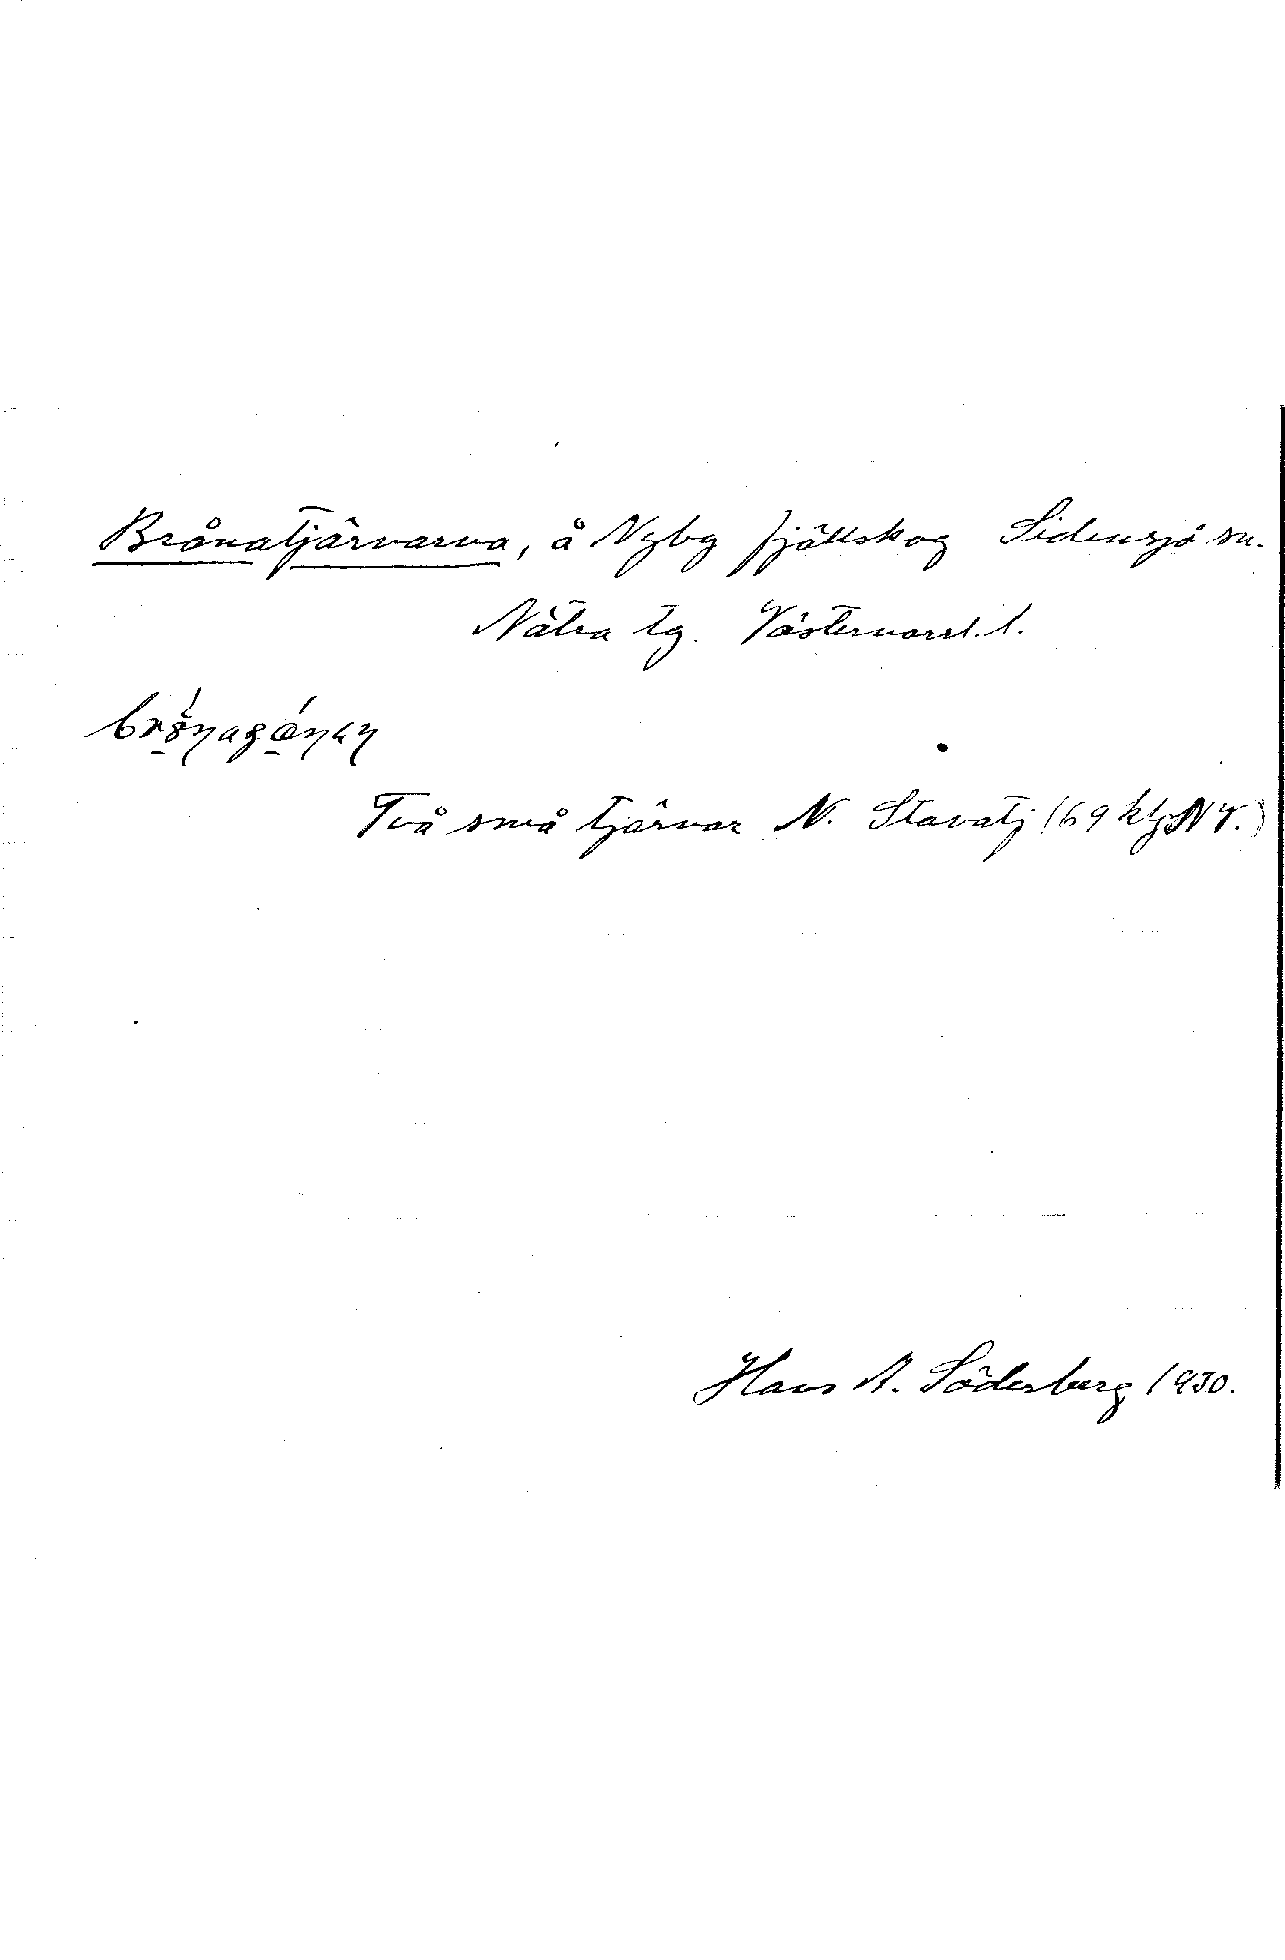 Brånatjärnarna, å Nyby fjällskog Sidensjö sn.
Nätra tg. Västernorrl. l.
Två små tjärnar N. Stavatj (69 ktj NV.)
Hans A. Söderberg 1930.